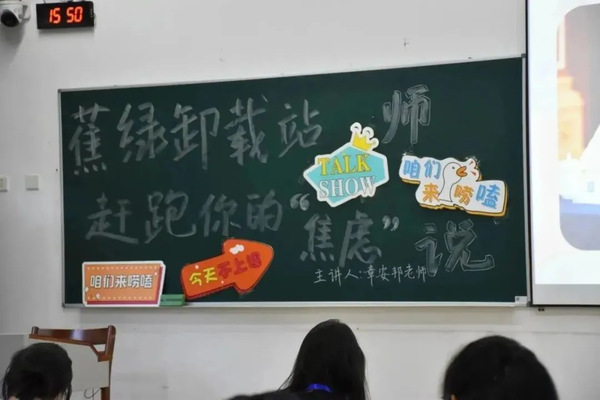 15 50
蕉绿卸载站 师
TALK
SHOW
咱们
来唠嗑
赶跑你的“焦虑” 说
今天不上班
咱们来唠嗑
主讲人:章安邦老师